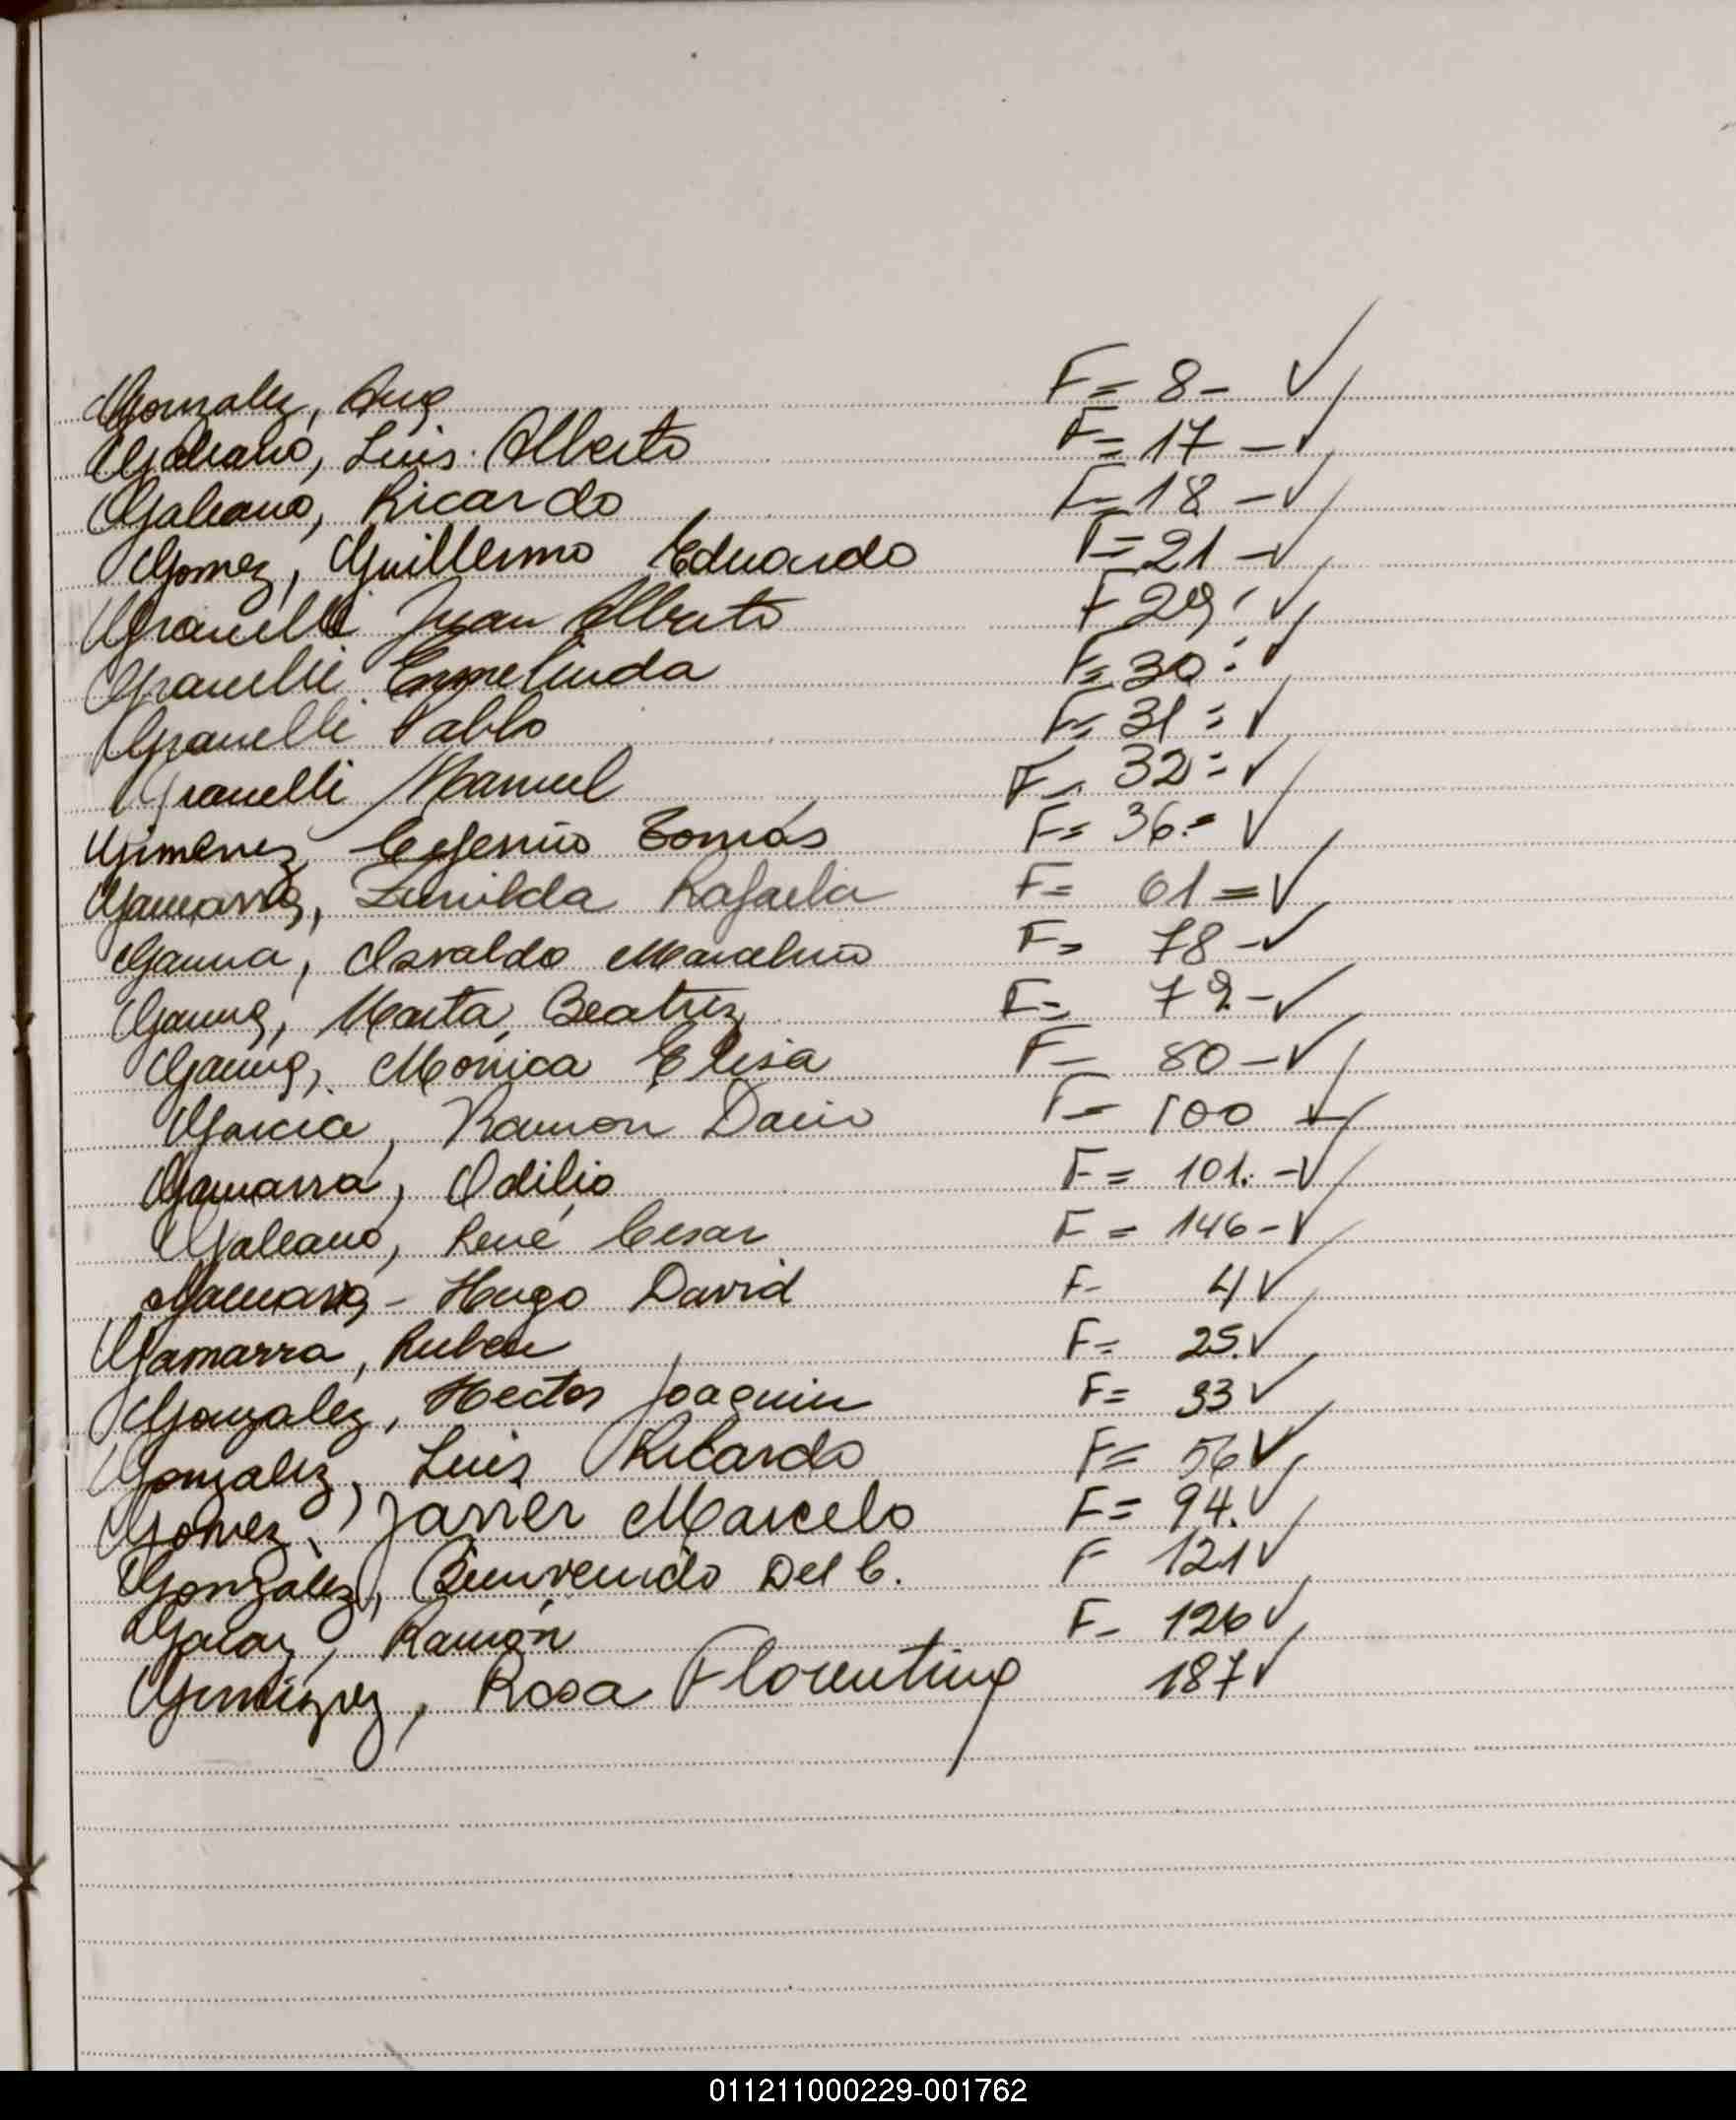 Gonzalez, Ana F= 8- ✓
Galeano, Luis Alberto F= 17 - ✓
Galeano, Ricardo F= 18 - ✓
Gomez, Guillermo Eduardo F= 21 - ✓
Granelli Juan Alberto F 29 ✓
Granelli Ermelinda F= 30 ✓
Granelli Pablo F= 31 = ✓
Granelli Manuel F. 32 = ✓
Gimenez, Eugenio Tomás F= 36.= ✓
Gamarra, Zunilda Rafaela F= 61 = ✓
Gauna, Osvaldo Marcelino F= 78 - ✓
Gauna, Marta Beatriz F= 79 - ✓
Gauna, Monica Elisa F= 80 - ✓
Garcia, Ramon Dario F= 100 ✓
Gamarra, Odilio F= 101. - ✓
Galeano, René Cesar F= 146 - ✓
Gamarra - Hugo David F- 4 ✓
Gamarra, Ruben F= 25. ✓
Gonzalez, Hector Joaquin F= 33 ✓
Gonzalez, Luis Ricardo F= 56 ✓
Gomez, Javier Marcelo F= 94. ✓
Gonzalez, Bienvenido Del C. F- 121 ✓
Ramón F- 126 ✓
Rosa Florentina 187 ✓
011211000229-001762